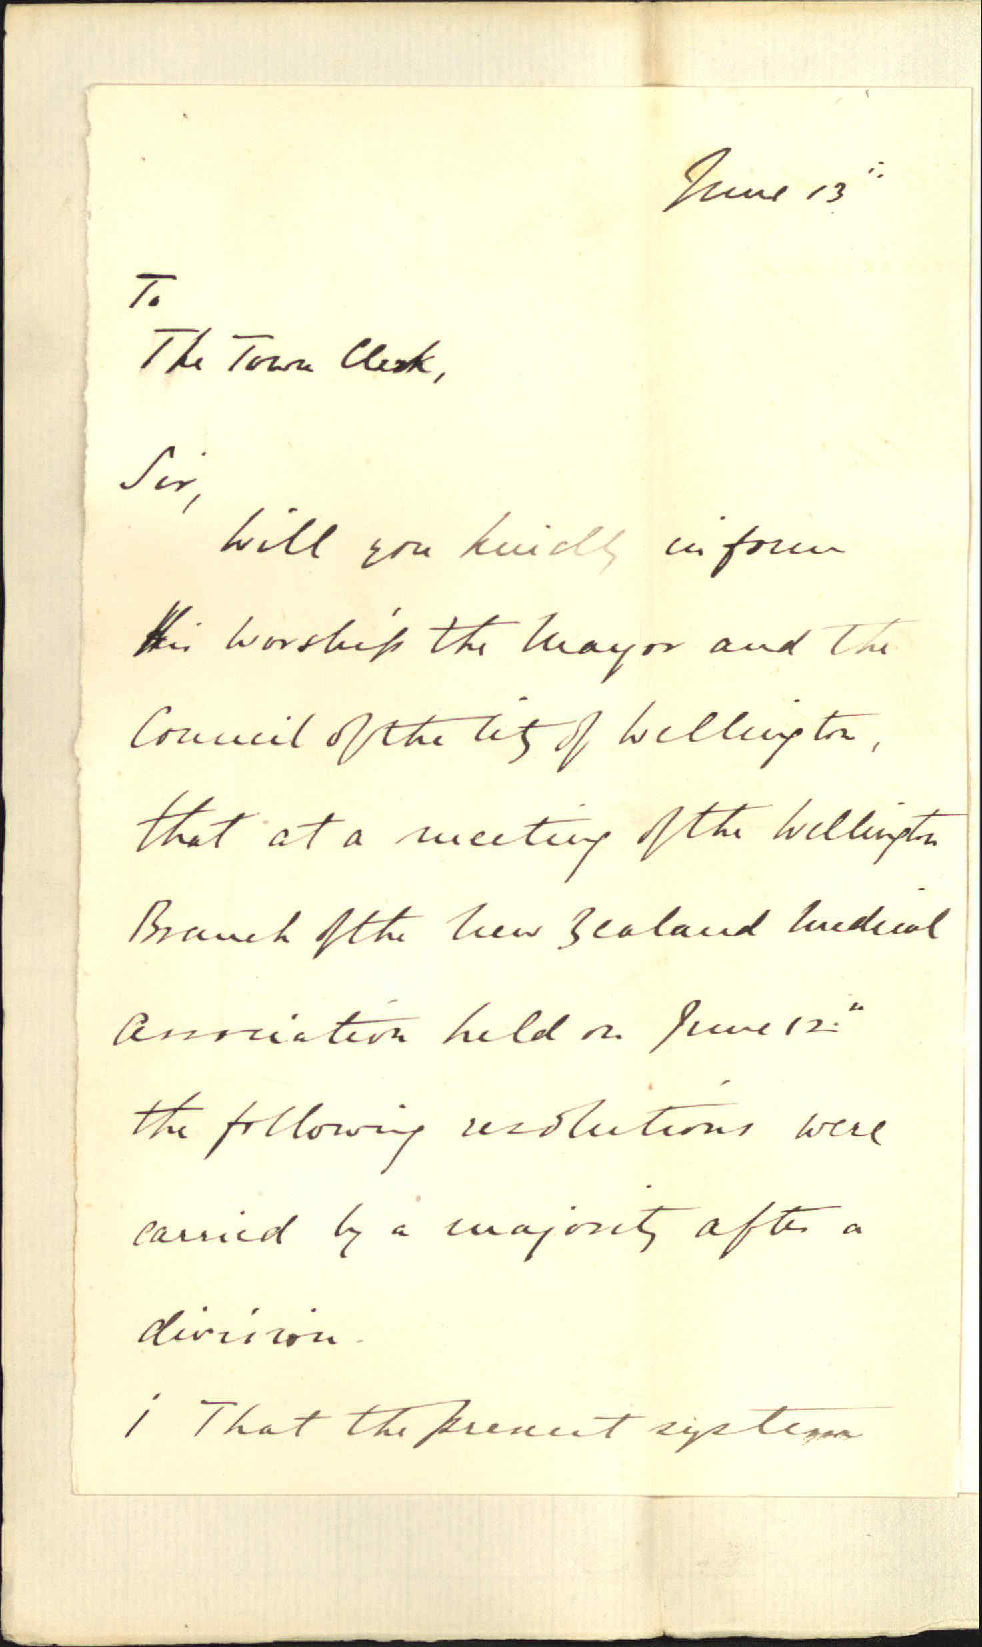 June 13th
To
The Town Clerk,
Sir,
Will you kindly inform
His Worship the Mayor and the
Council of the City of Wellington,
that at a meeting of the Wellington
Branch of the New Zealand Medical
Association held on June 12th
the following resolutions were
carried by a majority after a
division.
1 That the present system